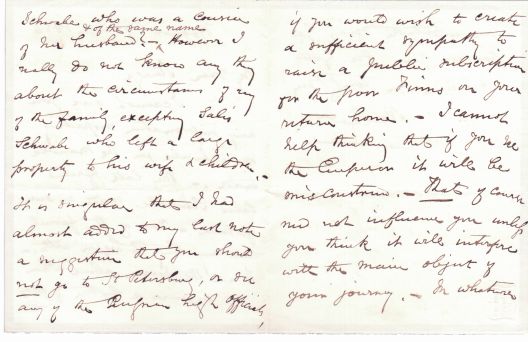 Schwabe who was a Cousin
& of the same name
of her husband's - However I
really do not know any thing
about the circumstances of any
of the family excepting Salis
Schwabe who left a large
property to his wife & children. -
It is singular that I had
almost added to my last note
a suggestion that you should
not go to St Petersburg, or see
any of the high Officials,
if you would wish to create
a sufficient sympathy to
raise a public subscription
for the poor Finns on your
return home. - I cannot
help thinking that if you see
the Emperor it will be
misconstrued. - That of course
need not influence you unless
you think it will interfere
with the main object of
your journey. - In whatever